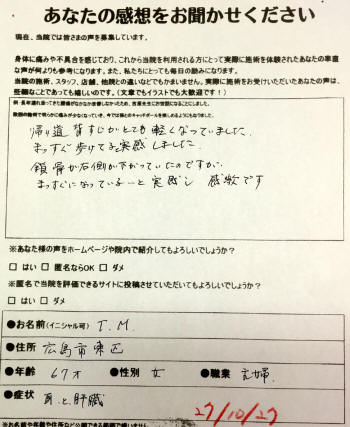 あなたの感想をお聞かせください
現在、当院では皆さまの声を募集しています。
身体に痛みや不具合を感じており、これから当院を利用される方にとって実際に施術を体験されたあなたの率直
な声が何よりも参考になります。また、私たちにとっても毎日の励みになります。
当院の施術、スタッフ、店舗、他院との違いなどでもかまいません。実際に施術をお受けいただいたあなたの声は、
些細なことであっても嬉しいのです。(文章でもイラストでも大歓迎です！)
帰り道 背すじがとても軽くなっていました
まっすぐ歩けてると実感しました
鎖骨が右側が下がっていたのですが、
まっすぐになっているーと実感し 感激です
※あなた様の声をホームページや院内で紹介してもよろしいでしょうか？
□ はい □ 匿名ならOK □ ダメ
※匿名で当院を評価できるサイトに投稿させていただいてもよろしいでしょうか？
□ はい □ ダメ
●お名前(イニシャル可) T.M.
●住所 広島市東区
●年齢 67才 ●性別 女 ●職業 主婦
●症状 肩と肝臓
27/10/27